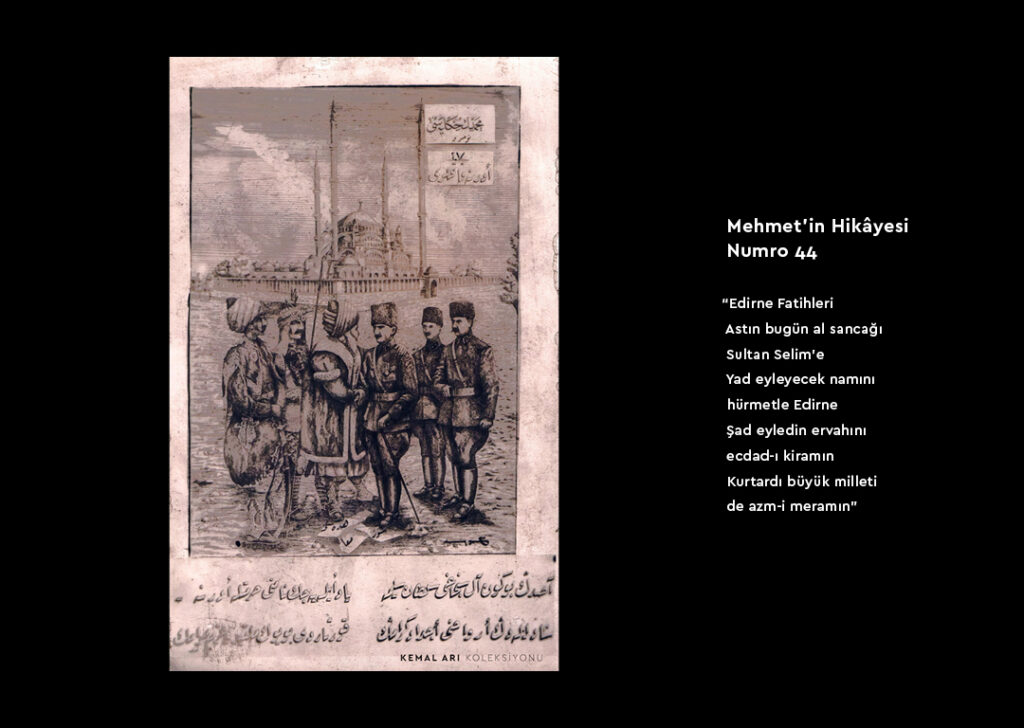 محمدك حكايه‌سی
نومرو
أدرنه فاتحلری
آصدك بوكون آل سنجاغی سلطان سليمه ياد أيله‌يه‌جك نامنی حرمتله أدرنه
شاد ايله‌دك أرواحنی أجداد كرامك قورتاردی بويوك
KEMAL ARI KOLEKSİYONU
Mehmet'in Hikâyesi
Numro 44
“Edirne Fatihleri
Astın bugün al sancağı
Sultan Selim'e
Yad eyleyecek namını
hürmetle Edirne
Şad eyledin ervahını
ecdad-ı kiramın
Kurtardı büyük milleti
de azm-i meramın”